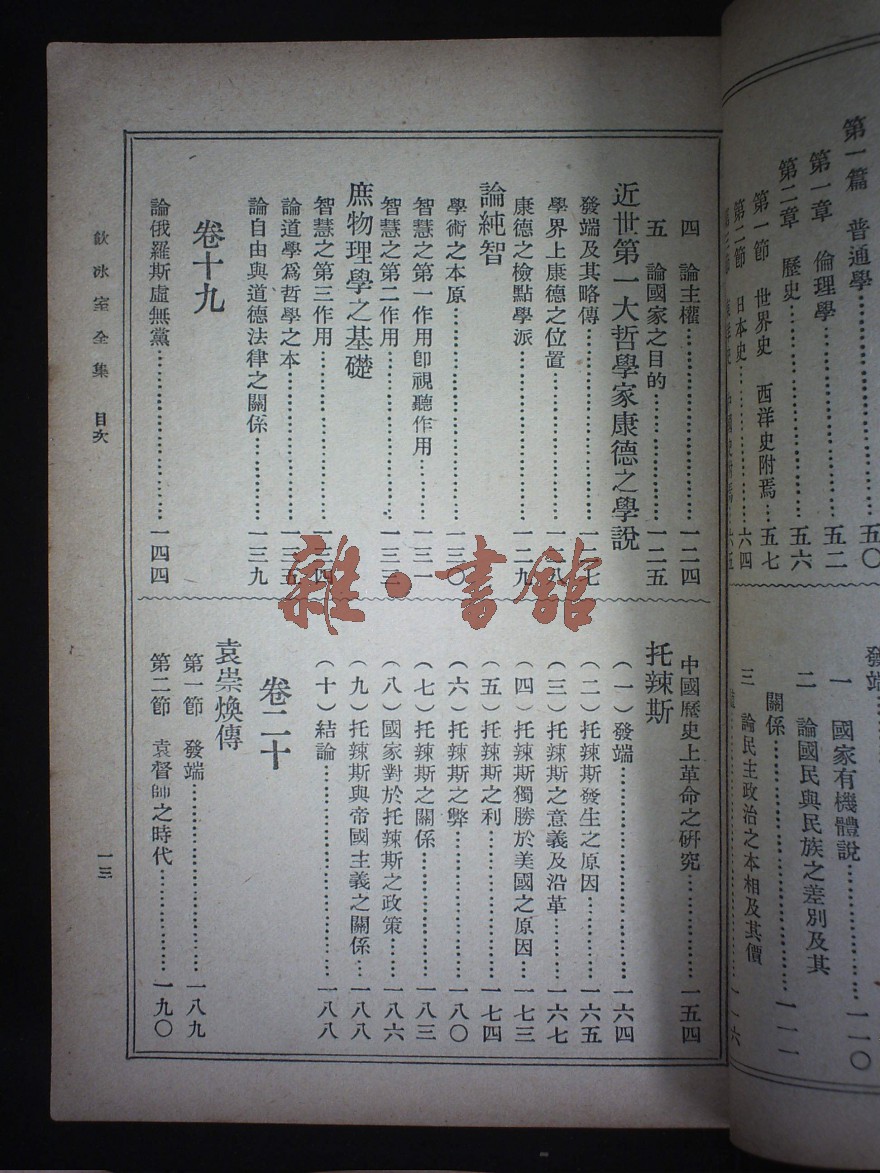 第一篇 普通學……五〇
第一章 倫理學……五二
第二章 歷史……五六
第一節 世界史 西洋史附焉…五七
第二節 日本史……六四
發端
一 國家有機體說……一一〇
二 論國民與民族之差別及其
關係……一一一
三 論民主政治之本相及其價
四 論主權……一二四
五 論國家之目的……一二五
近世第一大哲學家康德之學說
發端及其略傳……一二七
學界上康德之位置……一二八
康德之檢點學派……一二九
論純智
學術之本原……一三〇
智慧之第一作用卽視聽作用……一三一
智慧之第二作用……一三三
庶物理學之基礎
智慧之第三作用……一三四
論道學爲哲學之本……一三五
論自由與道德法律之關係……一三九
卷十九
論俄羅斯虛無黨……一四四
中國歷史上革命之研究……一五四
托辣斯
(一)發端……一六四
(二)托辣斯發生之原因……一六五
(三)托辣斯之意義及沿革……一六七
(四)托辣斯獨勝於美國之原因…一七三
(五)托辣斯之利……一七四
(六)托辣斯之弊……一八〇
(七)托辣斯之關係……一八三
(八)國家對於托辣斯之政策……一八六
(九)托辣斯與帝國主義之關係…一八八
(十)結論……一八八
卷二十
袁崇煥傳
第一節 發端……一八九
第二節 袁督師之時代……一九〇
飲冰室全集 目次
一三
雜·書館